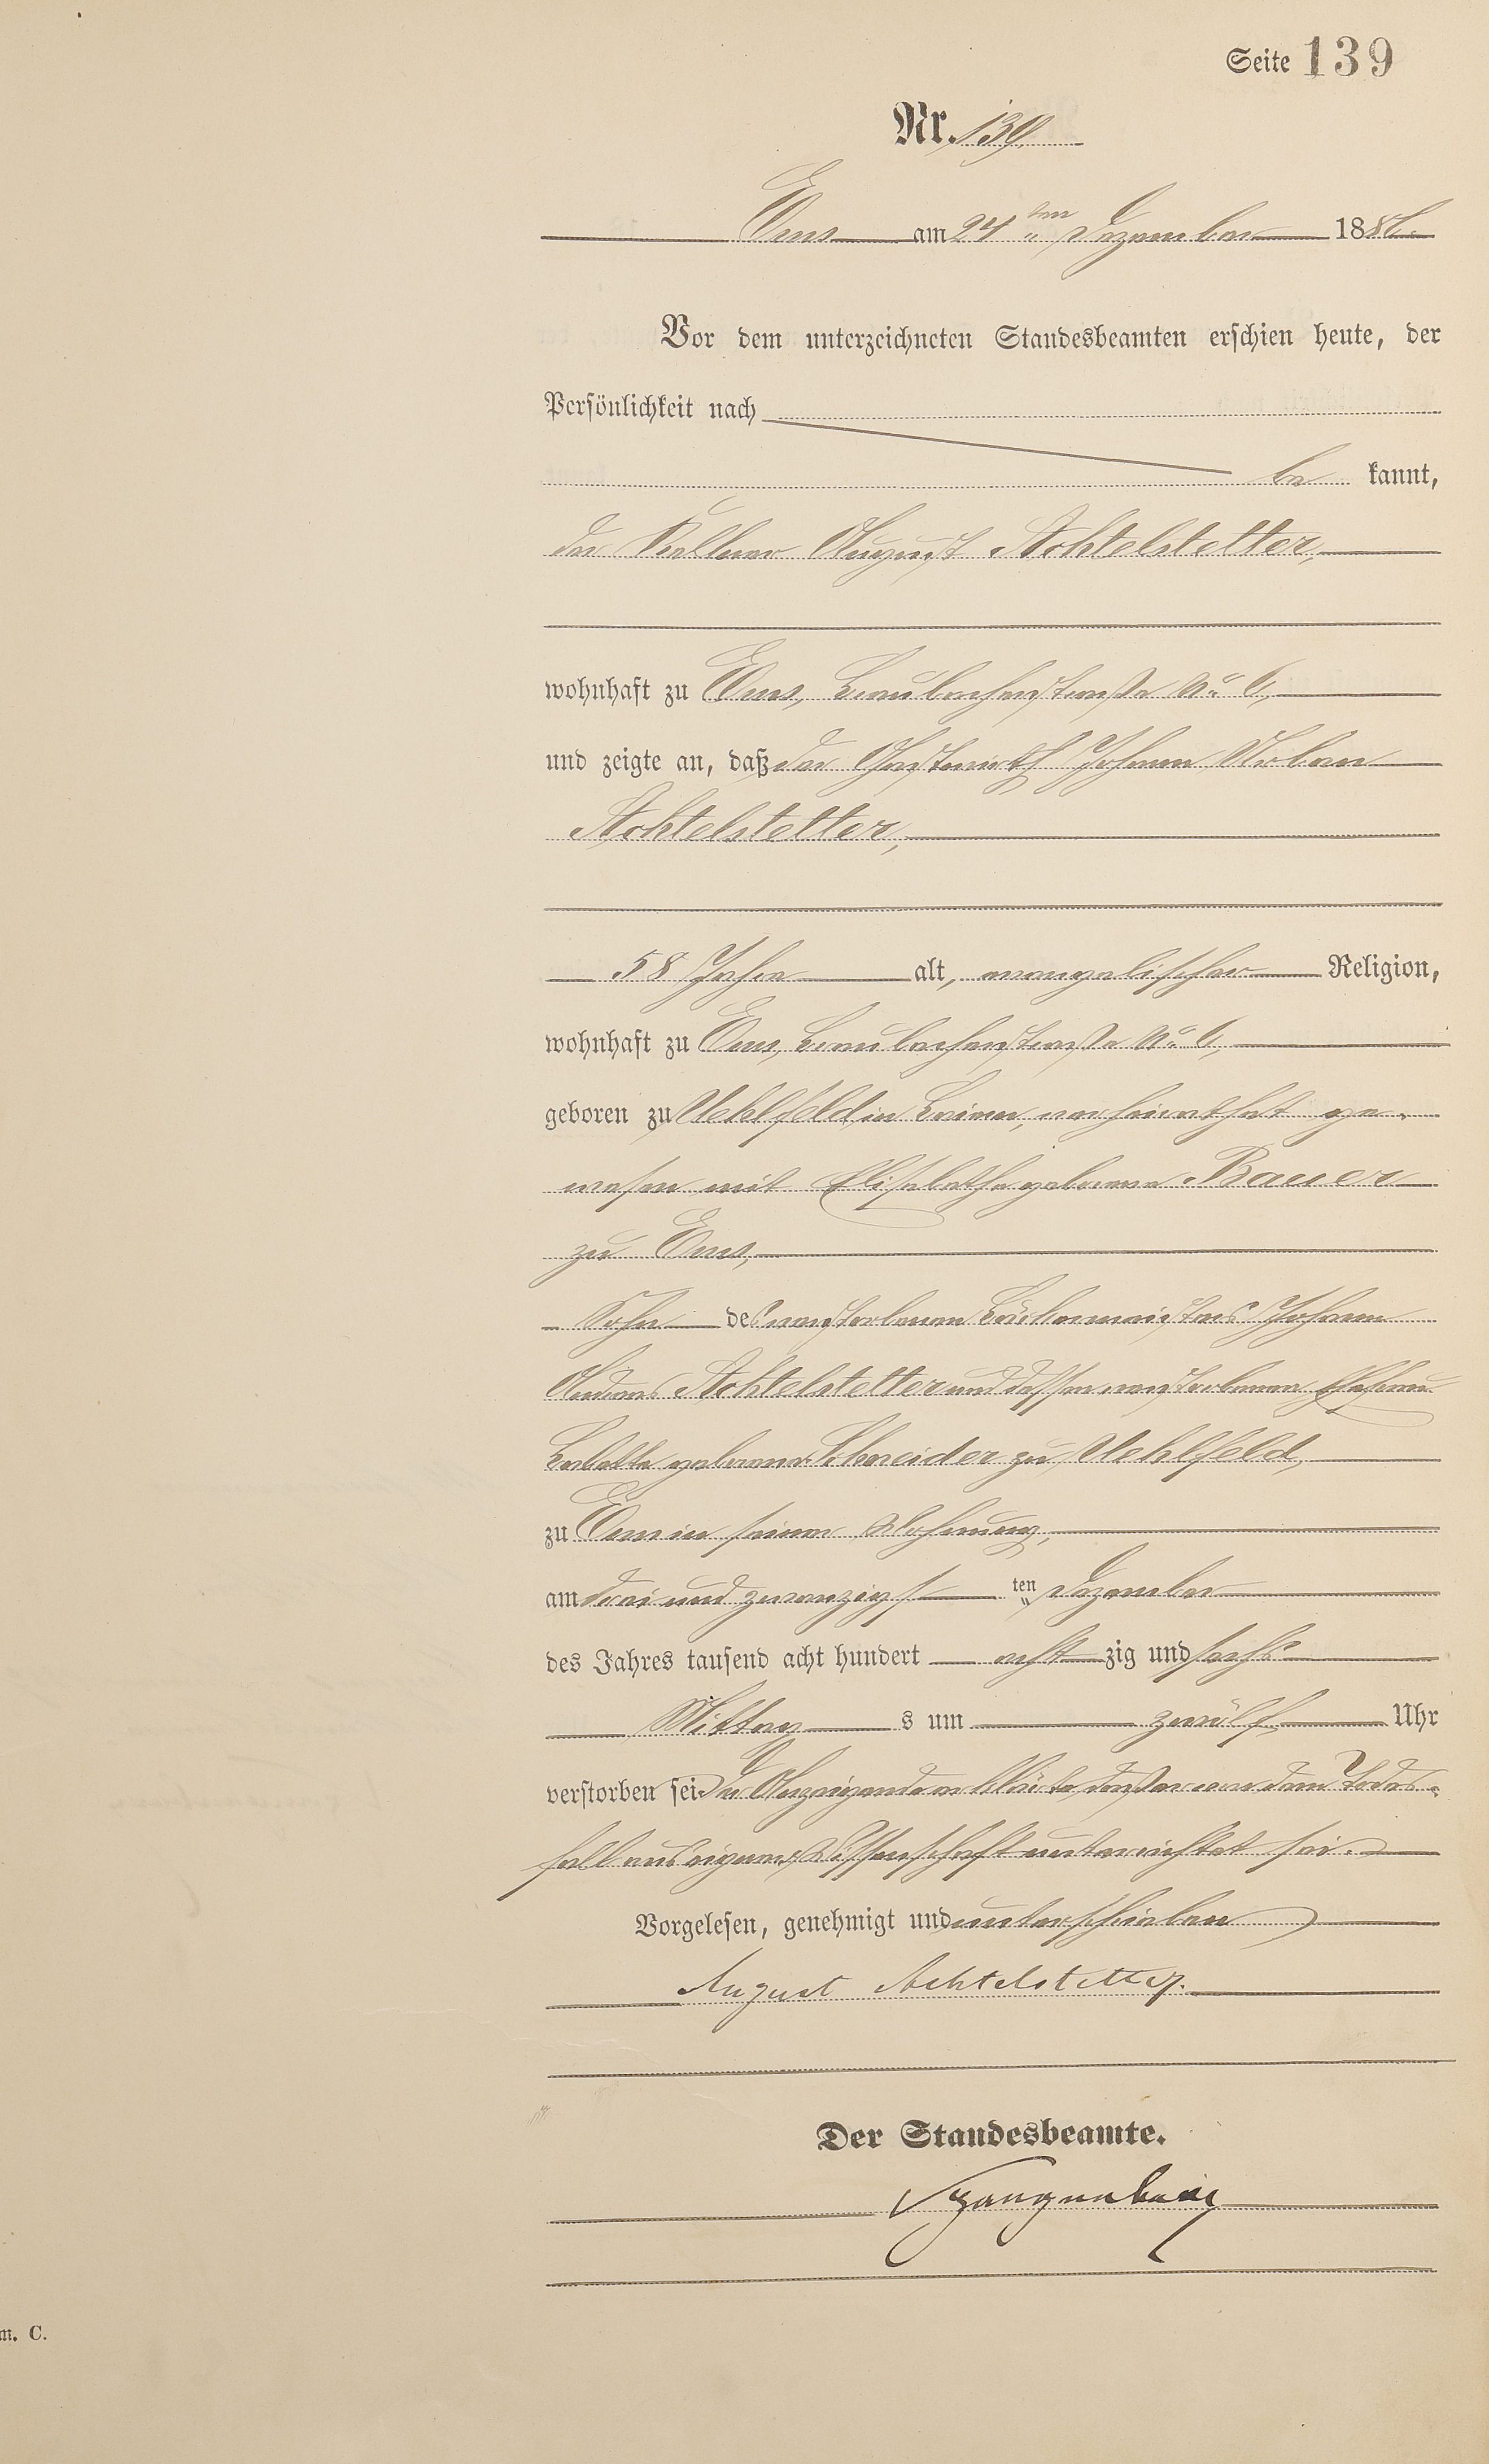 Seite 139
Nr. 139.
Ems am 24ten Dezember 1886.
Vor dem unterzeichneten Standesbeamten erschien heute, der
Persönlichkeit nach
be kannt,
der Kellner August Achtelstetter,
wohnhaft zu Ems, Braubacherstraße No 6,
und zeigte an, daß der Gastwirth Johann Urban
Achtelstetter,
58 Jahre alt, evangelischer Religion,
wohnhaft zu Ems, Braubacherstraße No 6,
geboren zu Uehlfeld in Baiern, verheirathet ge-
wesen mit Elisabetha geborene Bauer
zu Ems,
Sohn des verstorbenen Bäckermeisters Johann
Andreas Achtelstetter und dessen verstorbenen Ehefrau
Babette geborene Schneider zu Uehlfeld,
zu Ems in seiner Wohnung,
am drei und zwanzigs ten Dezember
des Jahres tausend acht hundert acht zig und sechs
Mittag s um zwölf Uhr
verstorben sei. Der Anzeigende erklärte, daß er von dem Todes-
fall aus eigener Wissenschaft unterrichtet sei.
Vorgelesen, genehmigt und unterschrieben
August Achtelstetter.
Der Standesbeamte.
m. C.